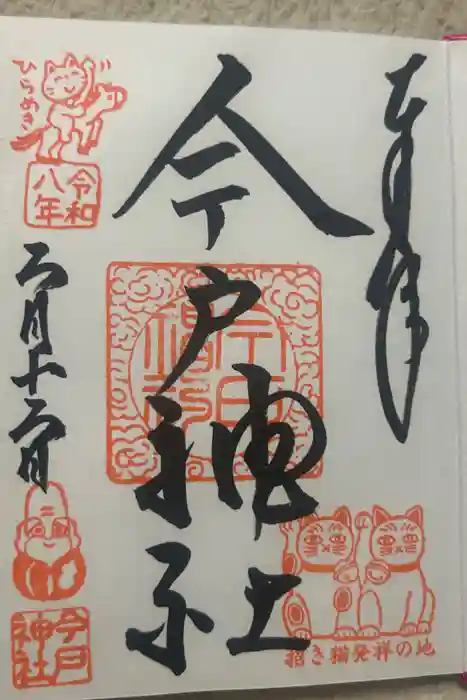 奉拝
今戸神社
ひらめき
令和
八年
二月十二日
今戸
神社
招き猫発祥の地